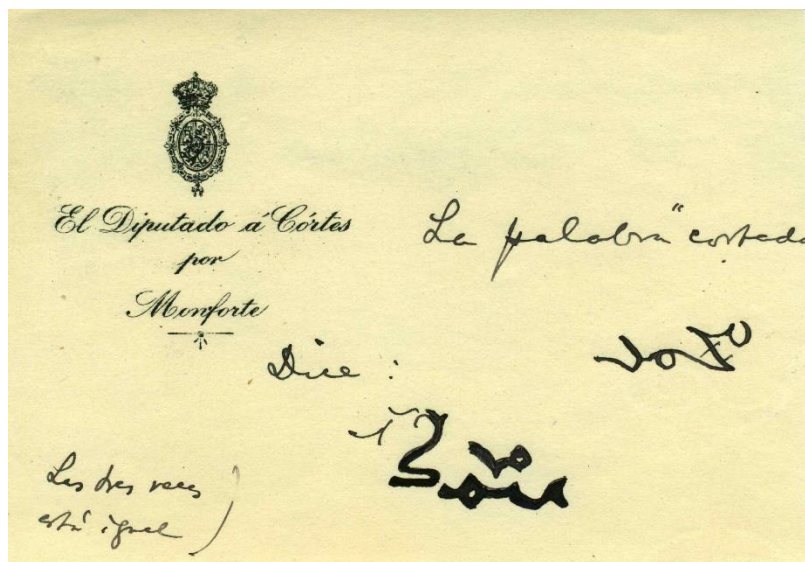 El Diputado á Córtes
por
Monforte
La palabra "cortada
Dice :
Las tres veces
está igual )